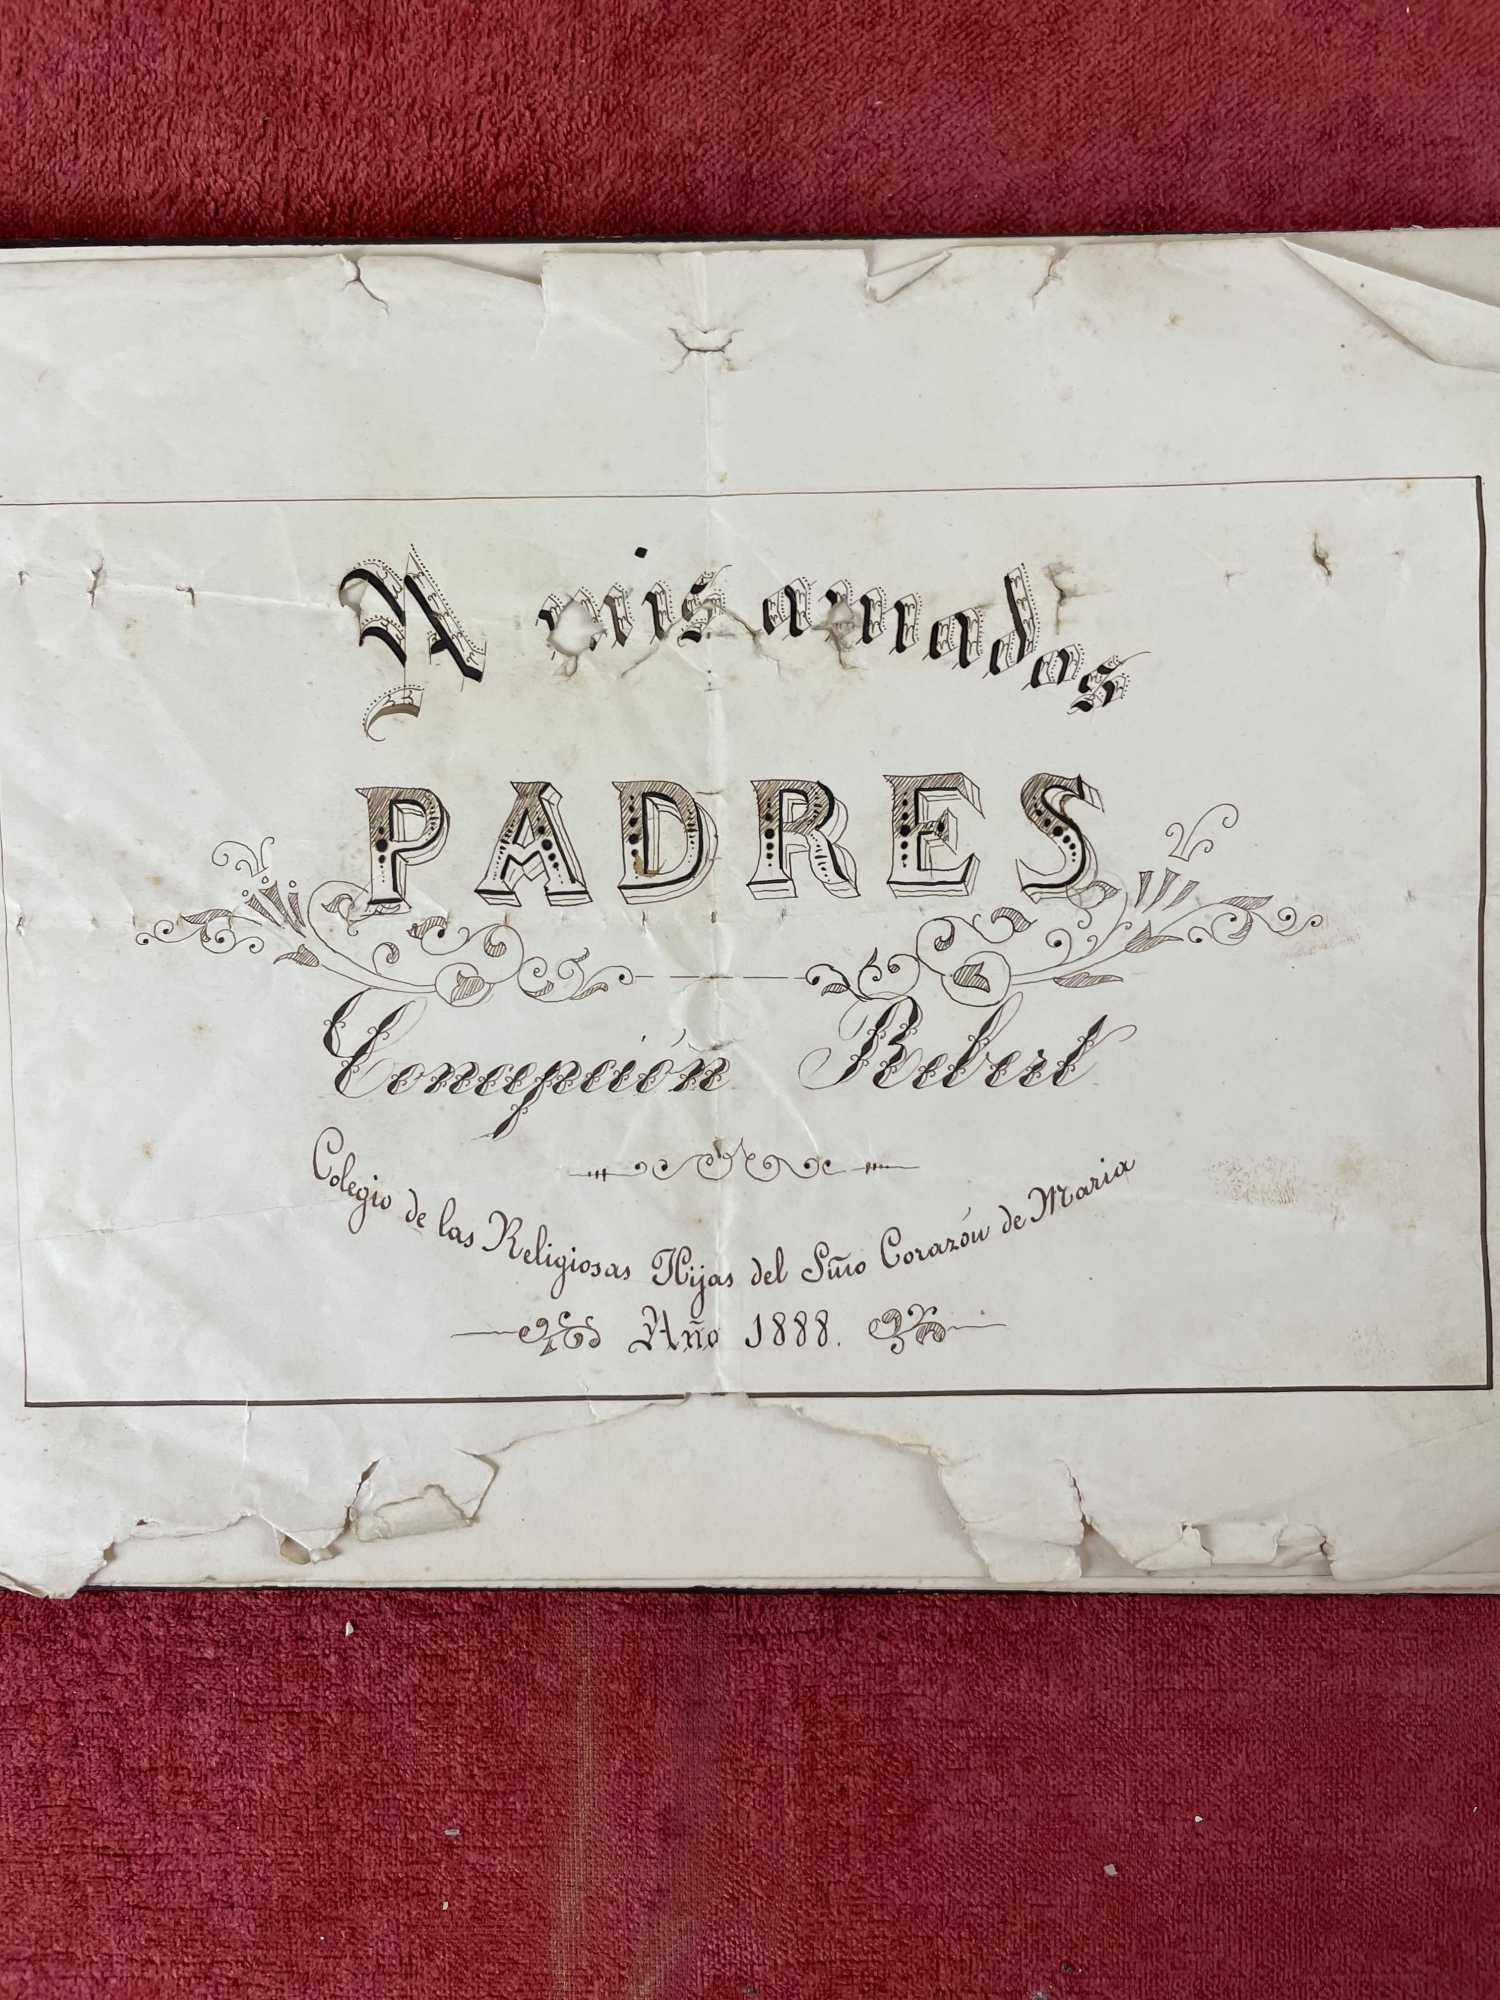 A mis amados
PADRES
Concepción Rebert
Colegio de las Religiosas Hijas del Smo Corazón de Maria
Año 1888.